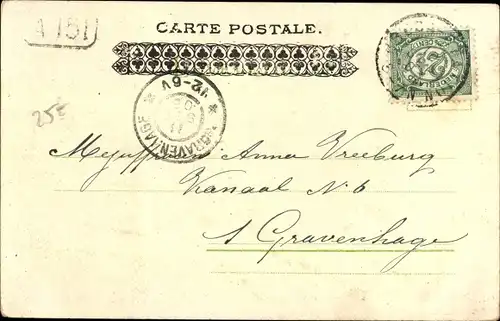 A 151
CARTE POSTALE.
25E
'SGRAVENHAGE
12-6V
Mejuffrouw Anna Vreeburg
Kanaal N. 6
s Gravenhage